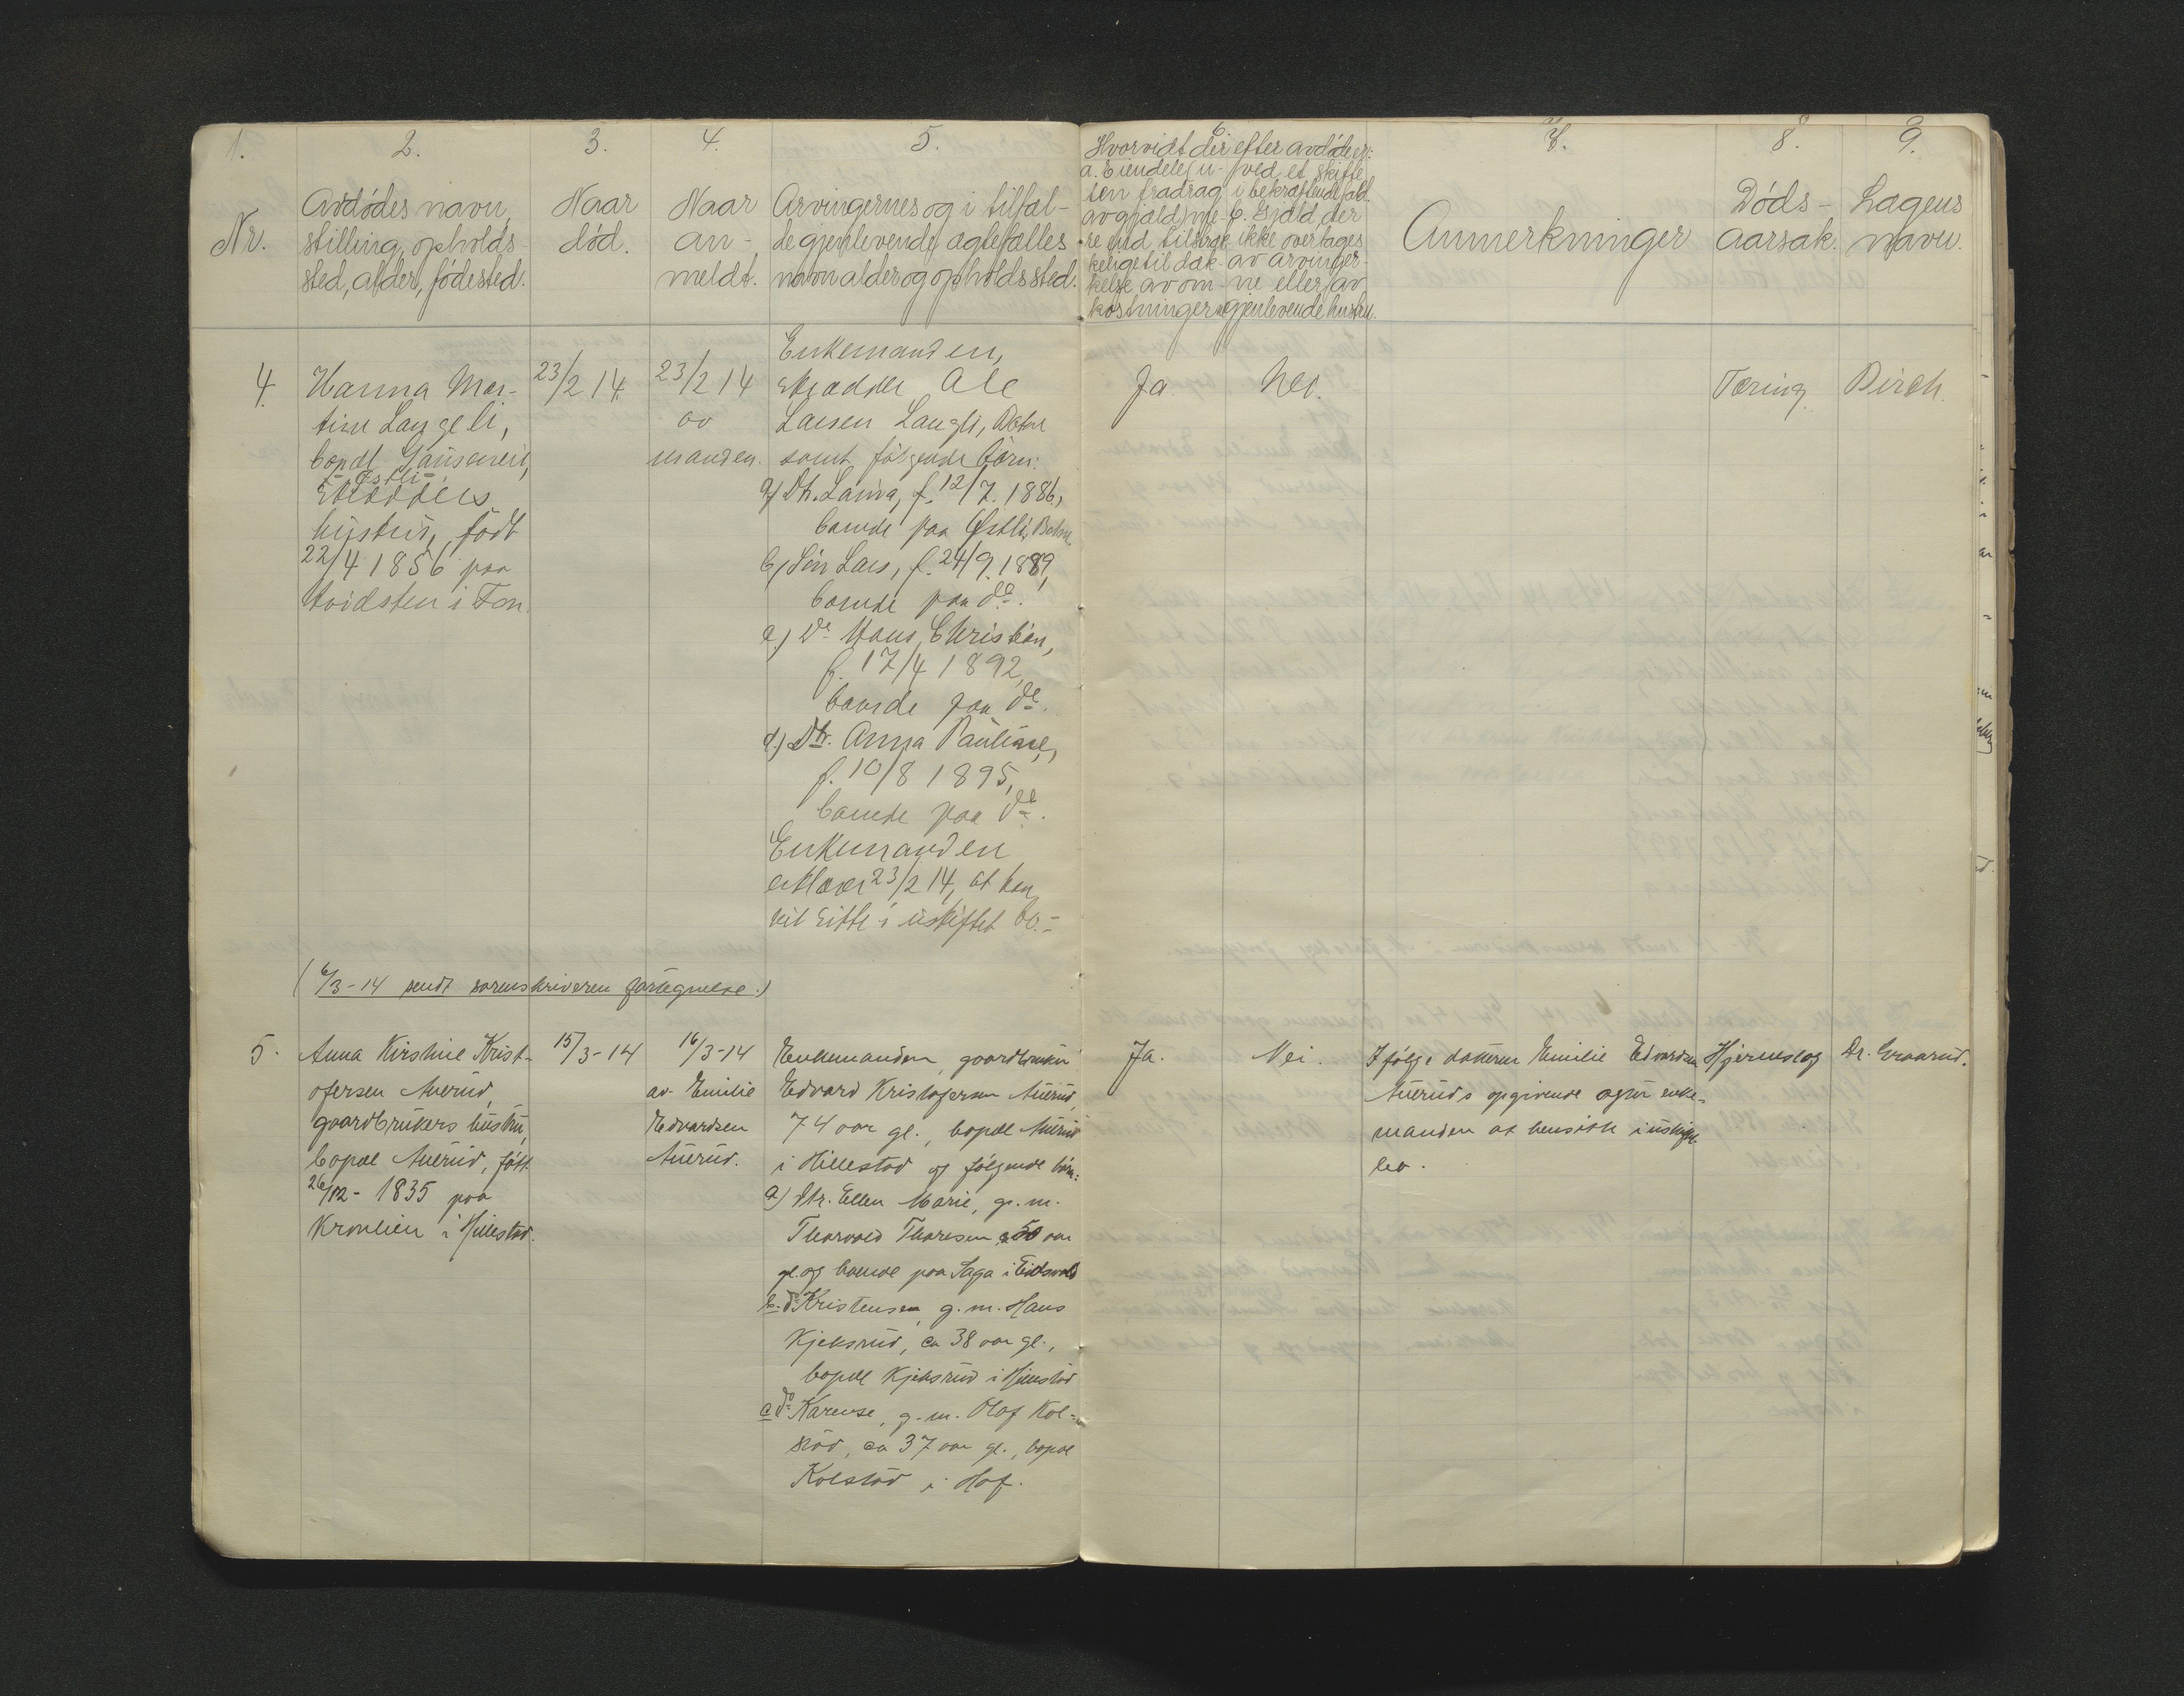 1.
2.
3.
4.
5.
6
7.
8.
9.
Nr.
Avdødes navn,
stilling, opholds-
sted, alder, fødested.
Naar
død.
Naar
an-
meldt.
Arvingernes og i tilfæl-
de gjenlevende ægtefælles
navn alder og opholdssted.
Hvorvidt der efter avdøde er:
a. Eiendele (u-
ten fradrag
av gjæld) me-
re end tilstræk-
kelige til dæk-
kelse av om-
kostningerne
ved et skifte
i bekræftende fald
b. Gjæld, der
ikke overtages
av arvinger-
ne eller av
gjenlevende hustru.
Anmerkninger
Døds-
aarsak.
Lægens
navn.
4.
Hanna Mar-
tine Langeli,
bopæl
Østli
Skrædders
hustru, født
22/4 1856 paa
i Fon.
23/2 14
23/2 14
av
manden.
Enkemanden,
skrædder Ole
Larsen Langli,
samt følgende børn:
a) Dt. Laura, f. 12/7. 1886,
boende paa Østli,
b) Søn Lars, f. 24/9. 1889,
boende paa do.
c.) Do Hans Christian,
f. 17/4 1892,
boende paa do.
d.) Dtr. Anna Pauline,
f. 10/8 1895,
boende paa do.
Enkemanden
erklærer 23/2 14, at han
vil sitte i uskiftet bo.-
Ja
Nei.
Tæring.
Birch.
(6/3-14 sendt sorenskriveren )
5.
Anna Kirstine Krist-
ofersen Auerud,
gaardbrukers hustru,
bopæl Auerud, født
26/12- 1835 paa
i Hillestad.
15/3-14
16/3-14
av Emilie
Edvardsen
Auerud.
Enkemanden, gaardbruker
Edvard Kristofersen Auerud,
74 aar gl., bopæl Auerud
i Hillestad og følgende børn:
a) Dtr. Ellen Marie, g. m.
Thorvald Thoresen 50 aar
gl. og boende paa Saga i Eidsvold
b. do Kristensen, g. m. Hans
Kjeksrud, ca 38 aar gl.,
bopæl Kjeksrud i Hillestad
c do Karense, g. m. Olaf Kol-
stad, ca 37 aar gl., bopæl
Kolstad i Hof.
Ja.
Nei.
Ifølge datteren Emilie Edvardsen
Auerud's opgivende agter enke-
manden at hensitte i uskiftet
bo.
Hjerneslag
Dr. Graarud.